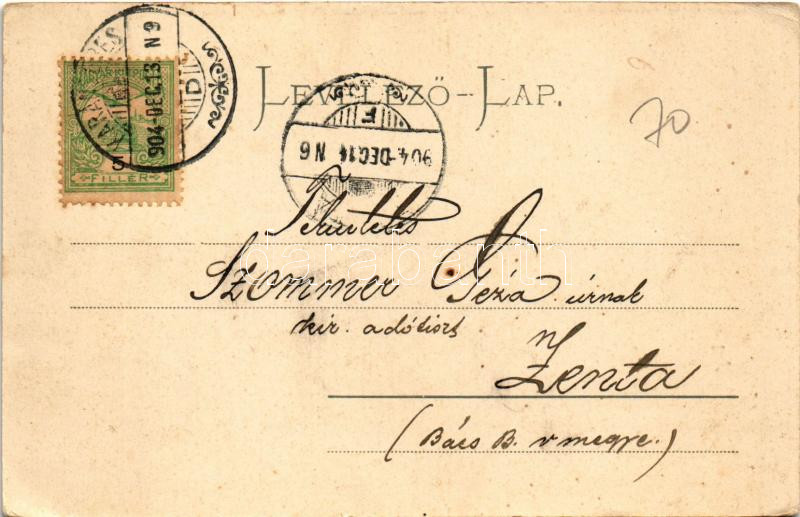 LEVELEZŐ-LAP.
70
904-DEC.13 N 9
D
MAGYAR KIR. POSTA
5
FILLÉR
F
904-DEC.14 N 6
Tekintetes
Szommer Géza úrnak
kir. adótiszt
Zenta
(Bács B. vmegye.)
darabanth